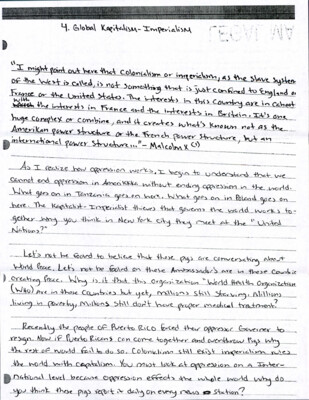 4. Global Kapitalism-Imperialism
LEGAL MA
"I might point out here that Colonialism or imperialism, as the slave system
of the West is called, is not something that is just confined to England or
France or the United States. The interests in this Country are in Cahoot
with the interests in France and the interests in Britain. It's one
huge complex or combine, and it creates what's known not as the
American power structure or the French power structure, but an
international power structure..." - Malcolm X (1)
As I realize how oppression works, I begin to understand that we
cannot end oppression in Amerikkka without ending oppression in the world.
What goes on in Tanzania goes on here. What goes on in goes on
here. The Kapitalist-Imperialist thieves that governs the world works to-
gether. Why you think in New York City they meet at the "United
Nations?"
Let's not be fooled to believe that these pigs are conversating about
World Peace. Let's not be fooled on these Ambassadors are in these Countries
creating Peace. Why is it that this organization "World Health Organization
(WHO) are in these Countries but yet, millions still starving. Millions
living in poverty, Millions still don't have proper medical treatment?
Recently the people of Puerto Rico forced their oppressor Governor to
resign. Now if Puerto Ricans can come together and overthrow Pigs why
the rest of would fail to do so. Colonialism still exist imperialism rules
the world with capitalism. You must look at oppression on a Inter-
National level because oppression effects the whole world. Why do
you think these pigs report it daily on every news station?